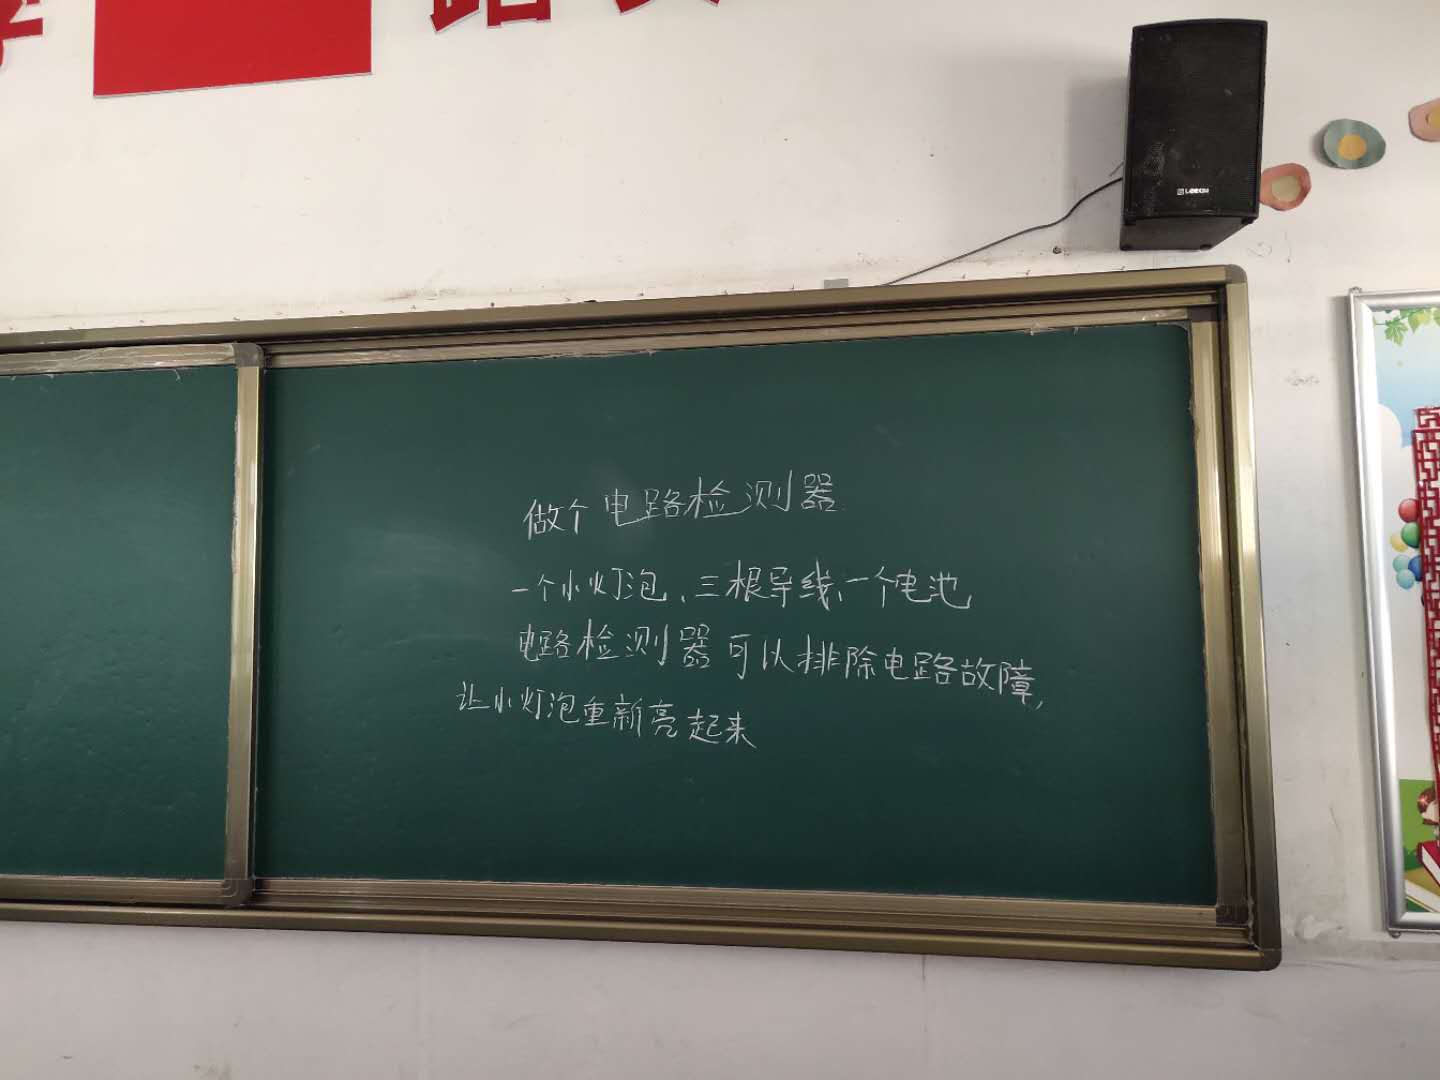 做个电路检测器
一个小灯泡、三根导线、一个电池
电路检测器可以排除电路故障,
让小灯泡重新亮起来